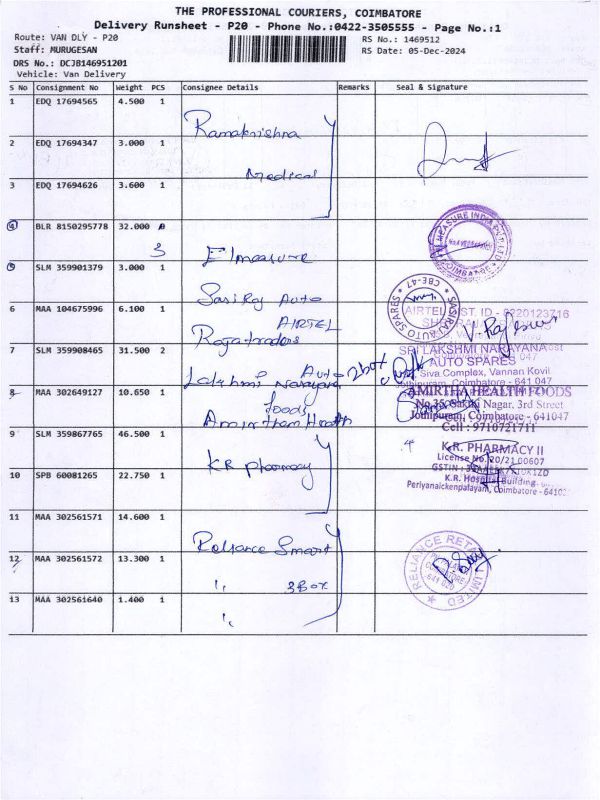 THE PROFESSIONAL COURIERS, COIMBATORE
Delivery Runsheet - P20 - Phone No.:0422-3505555 - Page No.:1
Route: VAN DLY - P20
RS No.: 1469512
Staff: MURUGESAN
RS Date: 05-Dec-2024
DRS No.: DCJB146951201
Vehicle: Van Delivery
S No Consignment No Weight PCS Consignee Details Remarks Seal & Signature
1 EDQ 17694565 4.500 1
Ramakrishna
2 EDQ 17694347 3.000 1
Medical
3 EDQ 17694626 3.600 1
4 BLR 8150295778 32.000
3
Elmeasure
5 SLM 359901379 3.000 1
Sasi Raj Auto
SASIRAJ AUTO SPARES
CBE-47
6 MAA 104675996 6.100 1
AIRTEL
AIRTEL DIST. ID - 6220123716
V. Rajeswari
7 SLM 359908465 31.500 2
Lakshmi Narayana Auto 2box
SRI LAKSHMI NARAYANA
AUTO SPARES
Siva Complex, Vannan Kovil
Coimbatore - 641 047
8 MAA 302649127 10.650 1
foods
Health
AMIRTHA HEALTH FOODS
Nagar, 3rd Street
Jothipuram, Coimbatore - 641047
Cell : 9710721711
9 SLM 359867765 46.500 1
KR Pharmacy
K.R. PHARMACY II
License No.20/21 00607
GSTIN :
K.R. Hospital Building
Periyanaickenpalayam, Coimbatore - 64102
10 SPB 60081265 22.750 1
11 MAA 302561571 14.600 1
Reliance Smart
RELIANCE RETAIL LIMITED
12 MAA 302561572 13.300 1
" 3Box
13 MAA 302561640 1.400 1
"